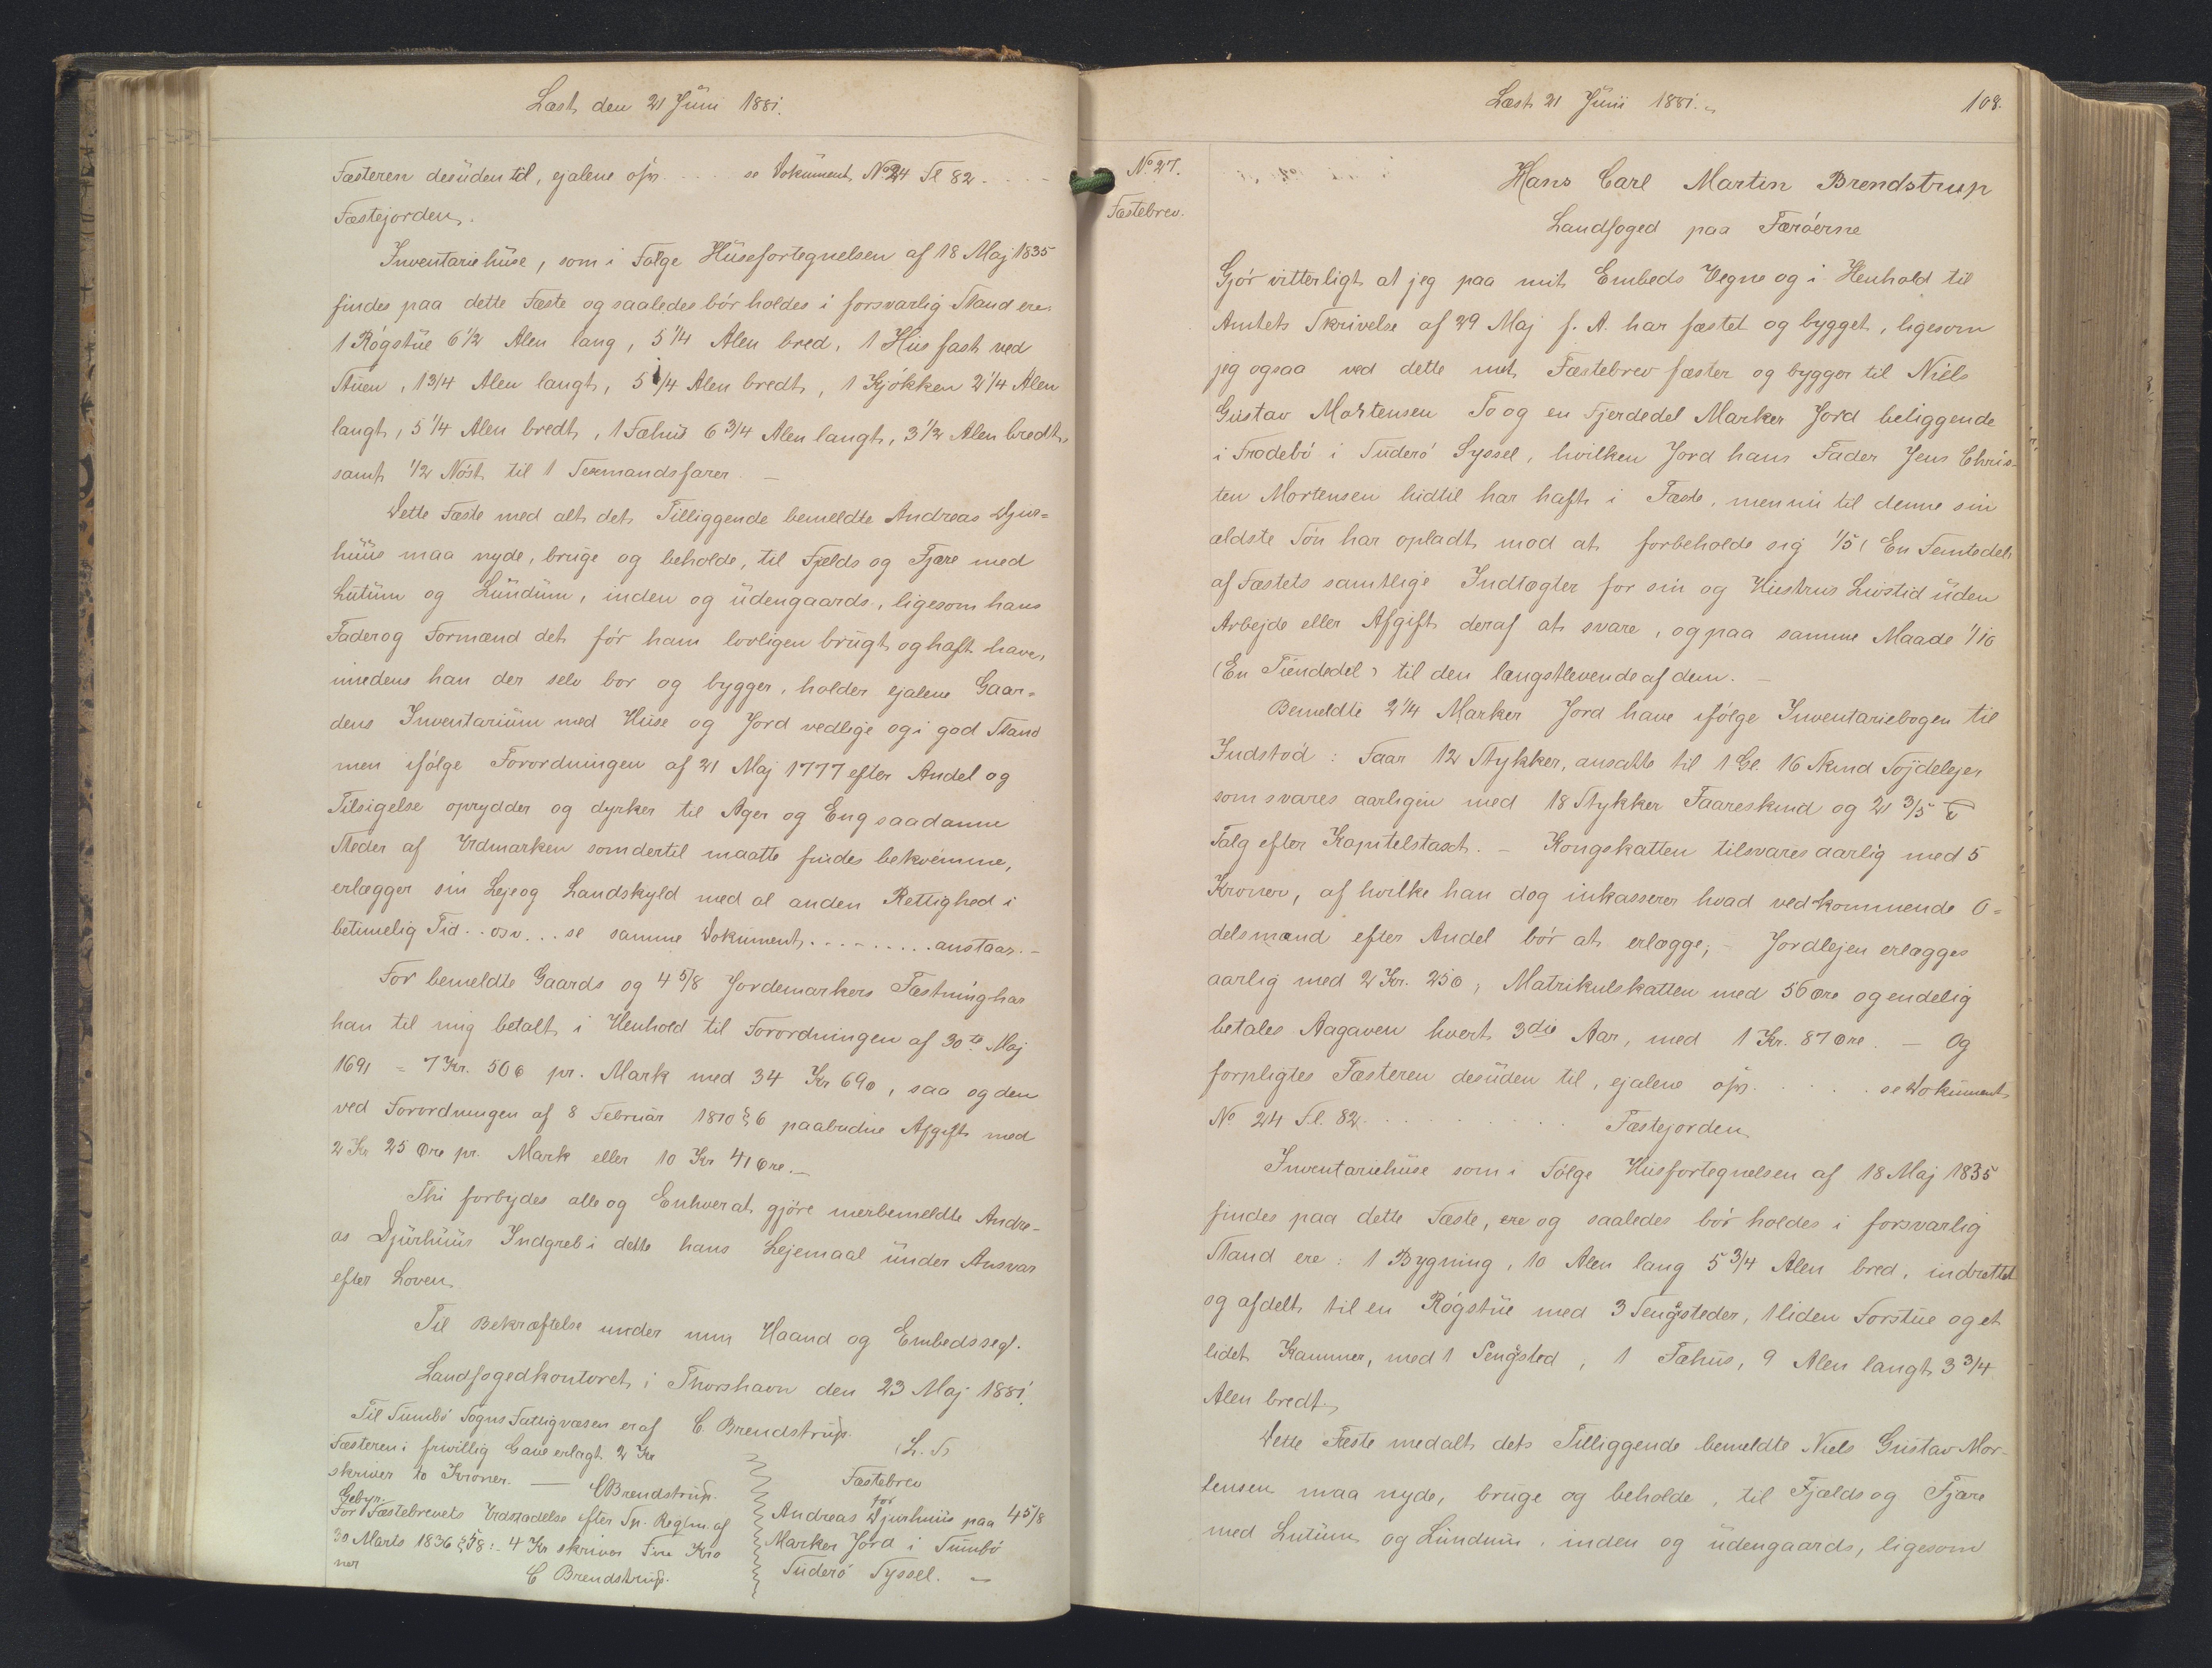 Læst den 21 Juni 1881.
Fæsteren desuden til, ejalene ofv. . . . . se Dokument No 24 Fl 82 . . . .
Fæstejorden.
Inventariehuse, som i Følge Husefortegnelsen af 18 Maj 1835
findes paa dette Fæste og saaledes bør holdes i forsvarlig Stand ere:
1 Røgstue 6 1/2 Alen lang, 5 1/4 Alen bred, 1 Hus fast ved
Stuen, 1 3/4 Alen langt, 5 1/4 Alen bredt, 1 Kjøkken 2 1/4 Alen
langt, 5 1/4 Alen bredt, 1 Fæhus 6 3/4 Alen langt, 3 1/2 Alen bredt,
samt 1/2 Nøst til 1 Sexmandsfarer. –
Dette Fæste med alt det Tilliggende bemeldte Andreas Djur=
huus maa nyde, bruge og beholde, til Fjelds og Fjære med
Lutum og Lundum, inden og udengaards, ligesom hans
Fader og Formænd det før ham lovligen brugt og haft have,
imedens han der selv bor og bygger, holder ejalene Gaar=
dens Inventarium med Huse og Jord vedlige og i god Stand
men ifølge Forordningen af 21 Maj 1777 efter Andel og
Tilsigelse oprydder og dyrker til Ager og Eng saadanne
Steder af Udmarken som dertil maatte findes bekvemme,
erlægger sin Leje og Landskyld med al anden Rettighed i
betimelig Tid . . osv. . . se samme Dokument . . . . . . . . . anstaar. –
For bemeldte Gaards og 4 5/8 Jordemarkers Fæstning har
han til mig betalt i Henhold til Forordningen af 30te Maj
1691 = 7 Kr. 50 ø pr. Mark med 34 Kr 69 ø, saa og den
ved Forordningen af 8 Februar 1810 § 6 paabudne Afgift med
2 Kr 25 Øre pr. Mark eller 10 Kr 41 Øre. –
Thi forbydes alle og Enhver at gjøre merbemeldte Andre-
as Djurhuus Indgreb i dette hans Lejemaal under Ansvar
efter Loven.
Til Bekræftelse under min Haand og Embedssegl.
Landfogedkontoret i Thorshavn den 23 Maj 1881.
C. Brendstrup.
(L. S.)
Til Sumbø Sogns Fattigvæsen er af
Fæsteren i frivillig Gave erlagt 2 Kr
skriver to Kroner. –
C Brendstrup.
Gebyr
For Fæstebrevets Udstædelse efter Sp. Reglm. af
30 Marts 1836 § 58: 4 Kr skriver Fire Kro
ner
C Brendstrup.
Fæstebrev
for
Andreas Djurhuus paa 4 5/8
Marker Jord i Sumbø
Suderø Syssel. –
Læst 21 Junii 1881. –
108.
No 27.
Fæstebrev.
Hans Carl Martin Brendstrup
Landfoged paa Færøerne
Gjør vitterligt at jeg paa mit Embeds Vegne og i Henhold til
Amtets Skrivelse af 29 Maj f. A. har fæstet og bygget, ligesom
jeg ogsaa ved dette mit Fæstebrev fæster og bygger til Niels
Gustav Mortensen To og en Fjerdedel Marker Jord beliggende
i Frodebø i Suderø Syssel, hvilken Jord hans Fader Jens Chris-
ten Mortensen hidtil har haft i Fæste, men nu til denne sin
ældste Søn har opladt mod at forbeholde sig 1/5 (En Femtedel)
af Fæstets samtlige Indtægter for sin og Hustrus Livstid uden
Arbejde eller Afgift deraf at svare, og paa samme Maade 1/10
(En Tiendedel) til den længstlevende af dem. –
Bemeldte 2 1/4 Marker Jord have ifølge Inventariebogen til
Indstød: Faar 12 Stykker, ansatte til 1 Gl. 16 Skind Søjdelejer
som svares aarligen med 18 Stykker Faareskind og 21 3/5 ℔
Talg efter Kapitelstaxt. – Kongskatten tilsvares aarlig med 5
Kroner, af hvilke han dog inkasserer hvad vedkommende O=
delsmænd efter Andel bør at erlægge; – Jordlejen erlægges
aarlig med 2 Kr. 25 ø; Matrikulskatten med 56 Øre og endelig
betales Aagaven hvert 3die Aar, med 1 Kr. 87 Øre. – Og
forpligtes Fæsteren desuden til, ejalene ofv. . . . . . se Dokument
No 24 Fl. 82 . . . . . . . . . . Fæstejorden
Inventariehuse som i Følge Husfortegnelsen af 18 Maj 1835
findes paa dette Fæste, ere og saaledes bør holdes i forsvarlig
Stand ere: 1 Bygning, 10 Alen lang 5 3/4 Alen bred, indrettet
og afdelt til en Røgstue med 3 Sengsteder, 1 liden Forstue og et
lidet Kammer, med 1 Sengsted, 1 Fæhus, 9 Alen langt 3 3/4
Alen bredt,
Dette Fæste med alt dets Tilliggende bemeldte Niels Gustav Mor-
tensen maa nyde, bruge og beholde, til Fjælds og Fjære
med Lutum og Lundum, inden og udengaards, ligesom